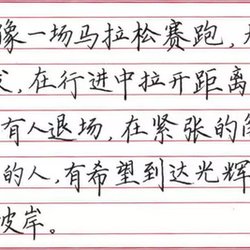 像一场马拉松赛跑,
,在行进中拉开距离
有人退场,在紧张的
的人,有希望到达光辉
彼岸。